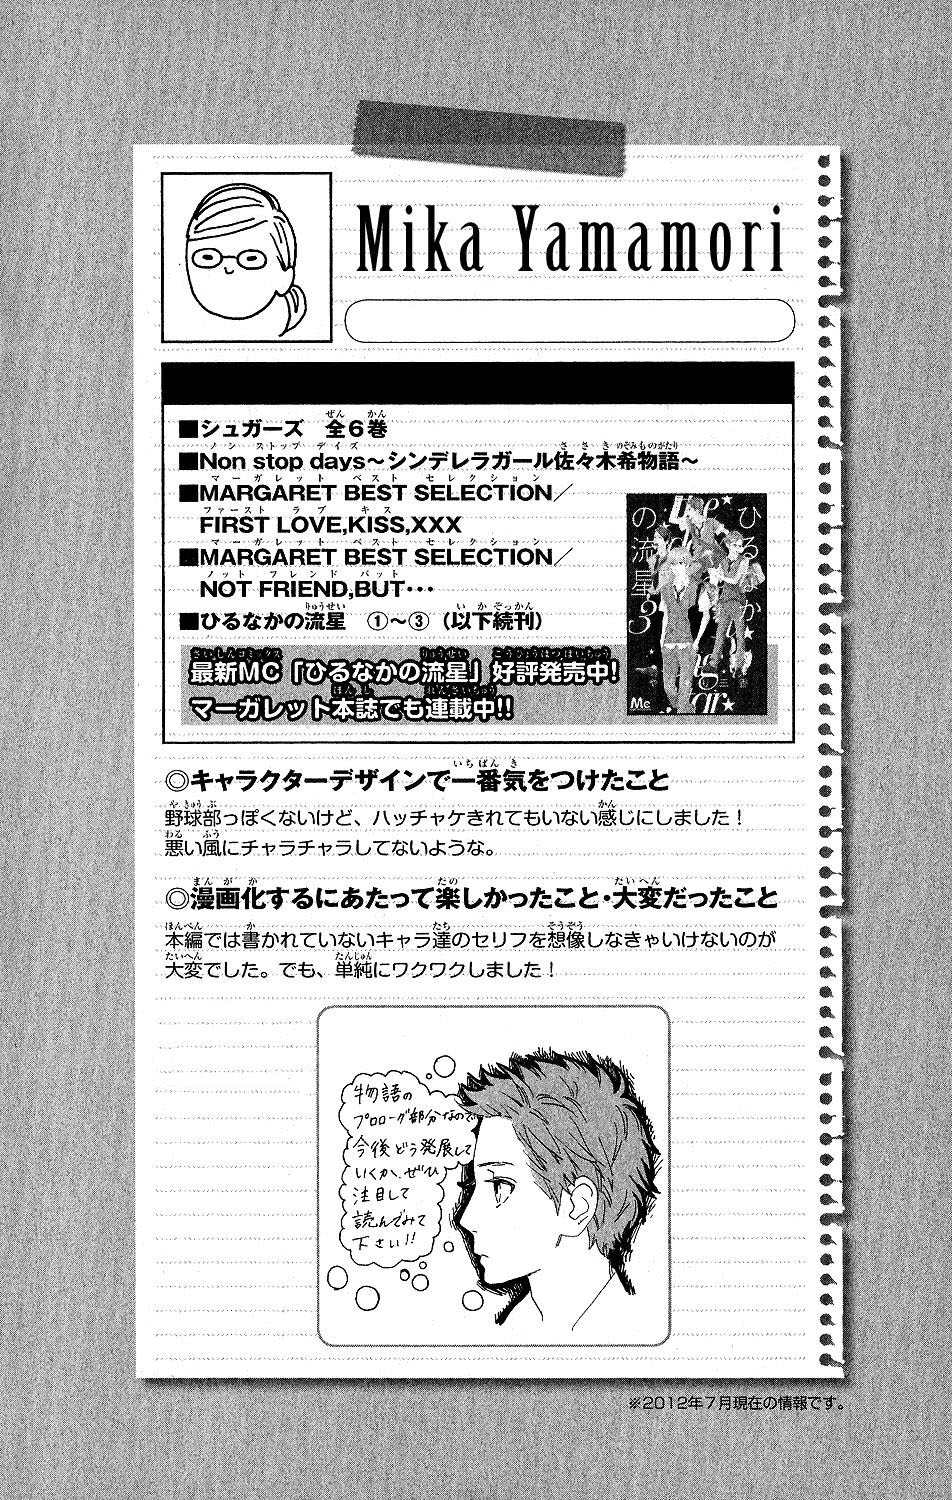 Mika Yamamori
■シュガーズ　全6巻
■Non stop days～シンデレラガール佐々木希物語～
■MARGARET BEST SELECTION／
FIRST LOVE,KISS,XXX
■MARGARET BEST SELECTION／
NOT FRIEND,BUT・・・
■ひるなかの流星　①～③（以下続刊）
最新MC「ひるなかの流星」好評発売中!
マーガレット本誌でも連載中!!
ひるなか
の流星
3
Mc
◎キャラクターデザインで一番気をつけたこと
野球部っぽくないけど、ハッチャケきれてもいない感じにしました！
悪い風にチャラチャラしてないような。
◎漫画化するにあたって楽しかったこと・大変だったこと
本編では書かれていないキャラ達のセリフを想像しなきゃいけないのが
大変でした。でも、単純にワクワクしました！
物語の
プロローグ部分なので
今後どう発展して
いくか、ぜひ
注目して
読んでみて
下さい!!
※2012年7月現在の情報です。